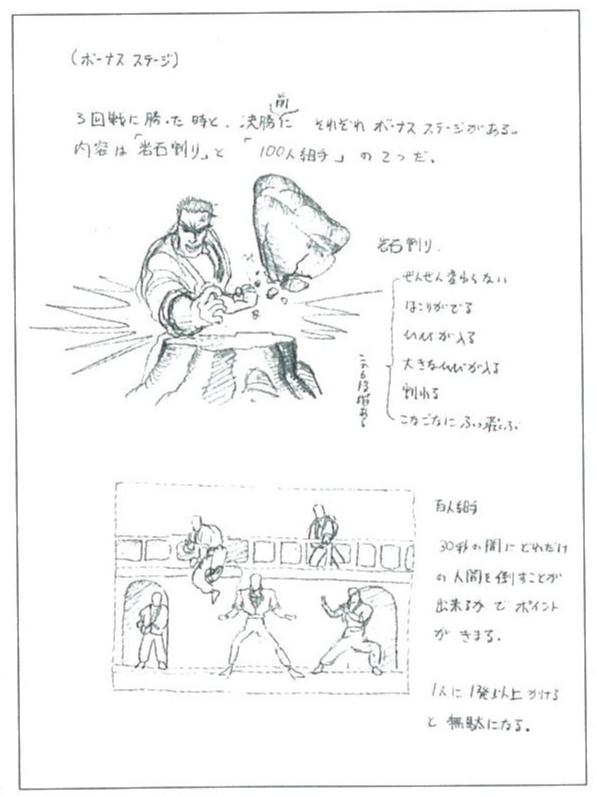 (ボーナス ステージ)
3回戦に勝った時と、決勝前に それぞれ ボーナス ステージがある。
内容は「岩石割り」と「100人組手」の2つだ。
岩石割り
ぜんぜん変わらない
ほこりがでる
ひびが入る
大きなひびが入る
割れる
こなごなにふっ飛ぶ
この6段階ある
百人組手
30秒の間にどれだけ
の人間を倒すことが
出来るかでポイント
がきまる。
1人に1発以上かける
と無駄になる。